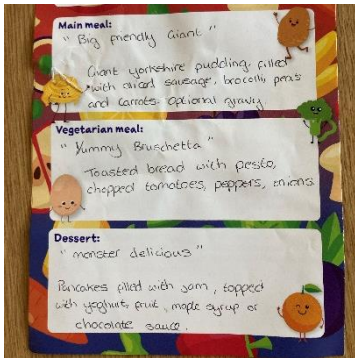 Main meal:
" Big friendly Giant "
Giant yorkshire pudding, filled
with sliced sausage, brocolli, peas
and carrots. Optional gravy
Vegetarian meal:
" Yummy Bruschetta "
Toasted bread with pesto,
chopped tomatoes, peppers, onions
Dessert:
" monster delicious "
Pancakes filled with jam, topped
with yoghurt, fruit, maple syrup or
chocolate sauce.